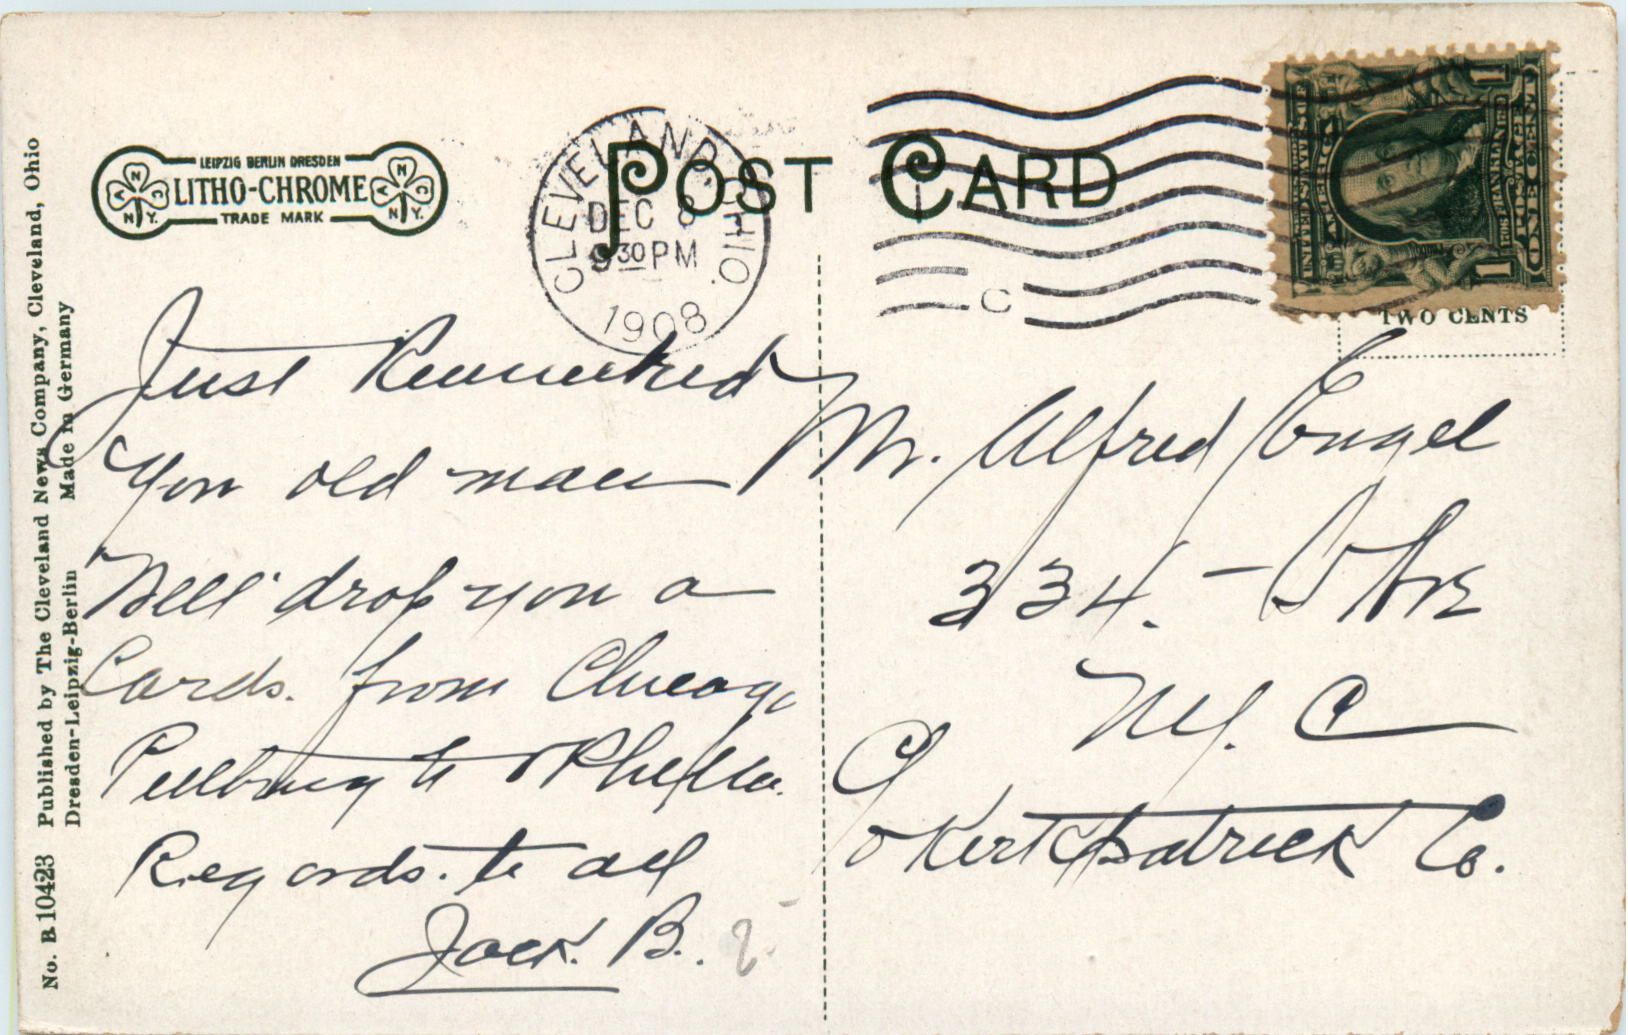 LEIPZIG BERLIN DRESDEN
LITHO-CHROME
TRADE MARK
A N C N.Y.
A N C N.Y.
POST CARD
CLEVELAND, OHIO.
DEC 8
9 30 PM
1908
C
UNITED STATES OF AMERICA
FRANKLIN
POSTAGE
ONE CENT
1 1
TWO CENTS
No. B 10423 Published by The Cleveland News Company, Cleveland, Ohio
Dresden-Leipzig-Berlin Made in Germany
Just Remembered
You old man
Well drop you a
Cards. from Chicago
Pittburg to & Phila.
Regards. to all
Jack. B.
Mr. Alfred Engel
334. - 5 Ave
N.Y. C
C/o Kirkpatrick Co.